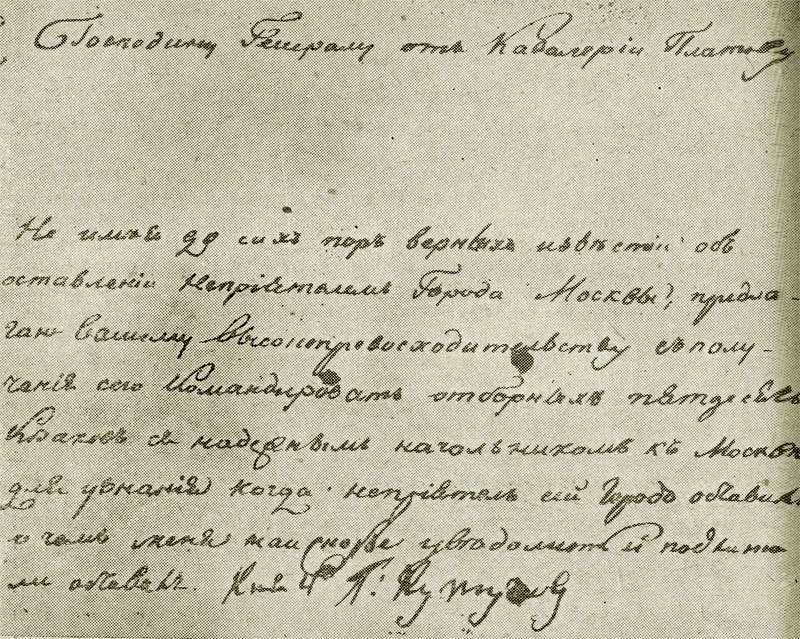 Господину Генералу отъ Кавалеріи Платову
Не имея до сихъ поръ верныхъ извѣстій объ
оставленіи Непріятелемъ Города Москвы, предла-
гаю Вашему Высокопревосходительству съ полу-
ченія сего Командировать отборныхъ пятдесятъ
Казаковъ съ надежнымъ начальникомъ къ Москве
для узнанія когда непріятель сей Городъ оставилъ
о чемъ меня наискорее уведомить и
ли оставилъ. Князь Г: Кутузовъ